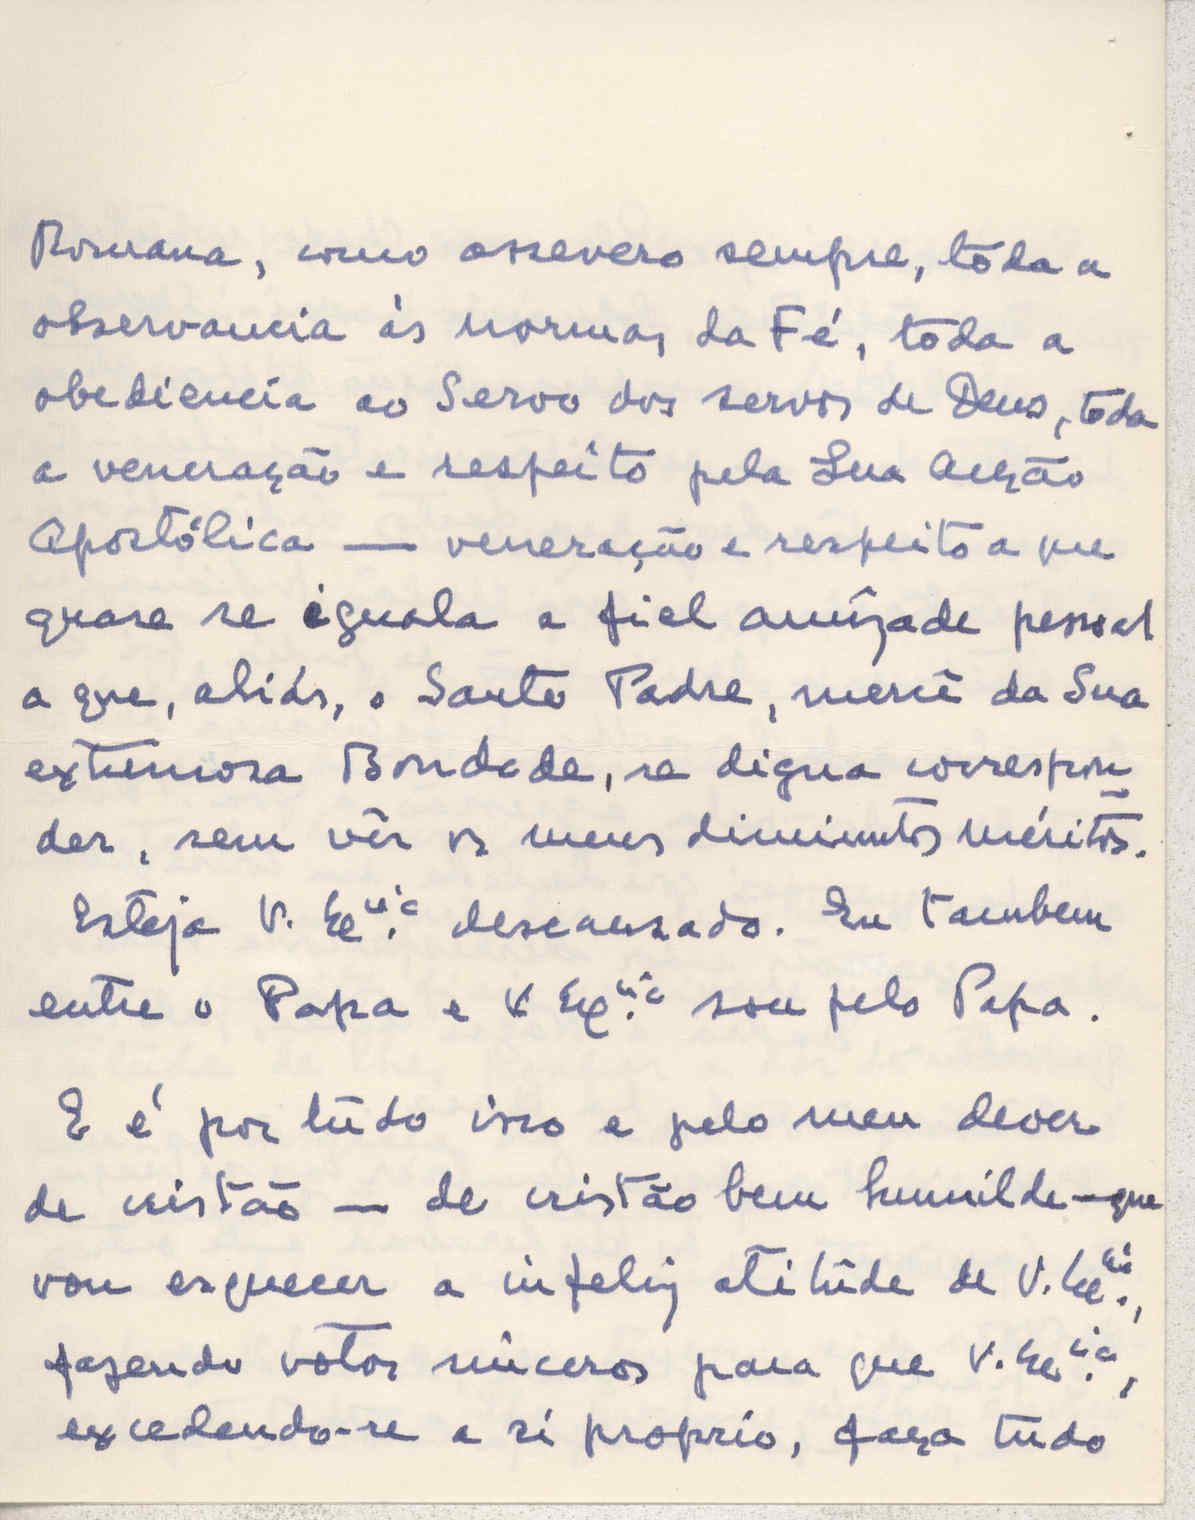 Romana, como assevero sempre, toda a
observancia ás normas da Fé, toda a
obediencia ao Servo dos servos de Deus, toda
a veneração e respeito pela Sua Acção
Apostólica — veneração e respeito a que
quase se iguala a fiel amizade pessoal
a que, aliás, o Santo Padre, mercê da Sua
extremosa Bondade, se digna correspon
der, sem vêr os meus diminutos méritos.
Esteja V. Ex.cia descansado. Eu tambem
entre o Papa e V Ex.cia sou pelo Papa.
E é por tudo isso e pelo meu dever
de cristão — de cristão bem humilde — que
vou esquecer a infeliz atitude de V. Ex.cia,
fazendo votos sinceros para que V. Ex.cia,
excedendo-se a si proprio, faça tudo